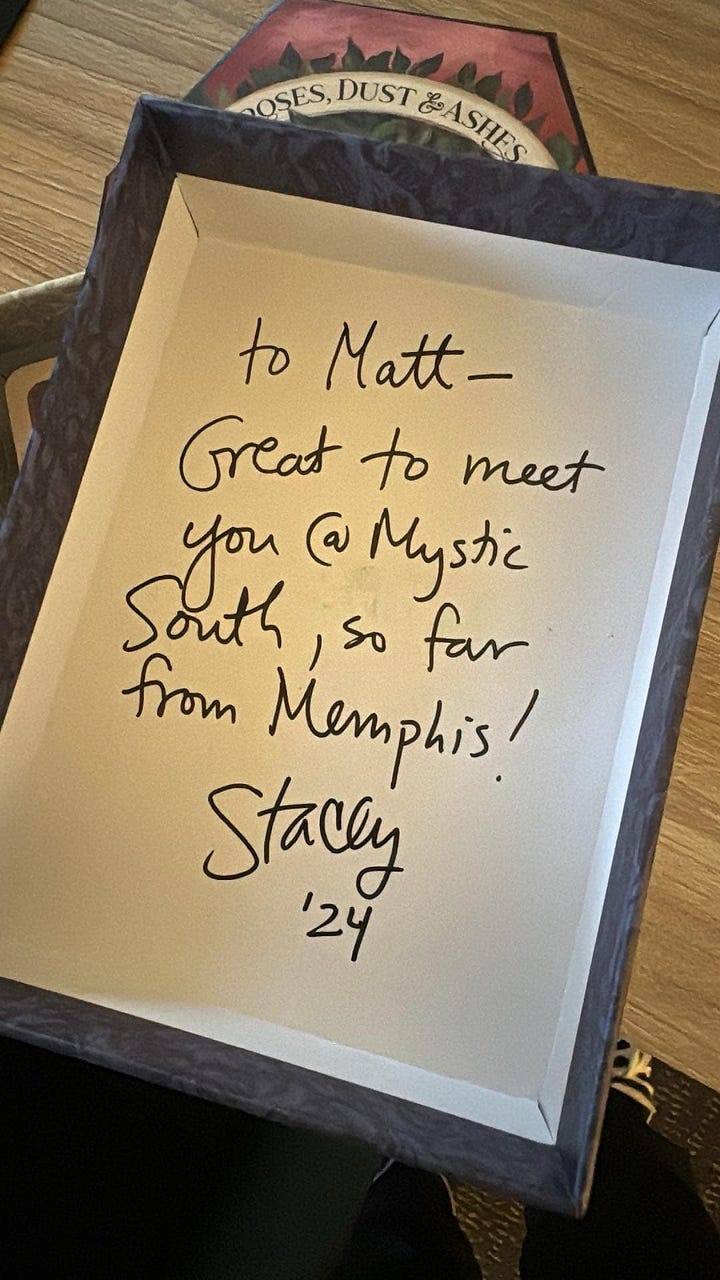 ROSES, DUST & ASHES
to Matt—
Great to meet
you @ Mystic
South, so far
from Memphis!
Stacey
'24